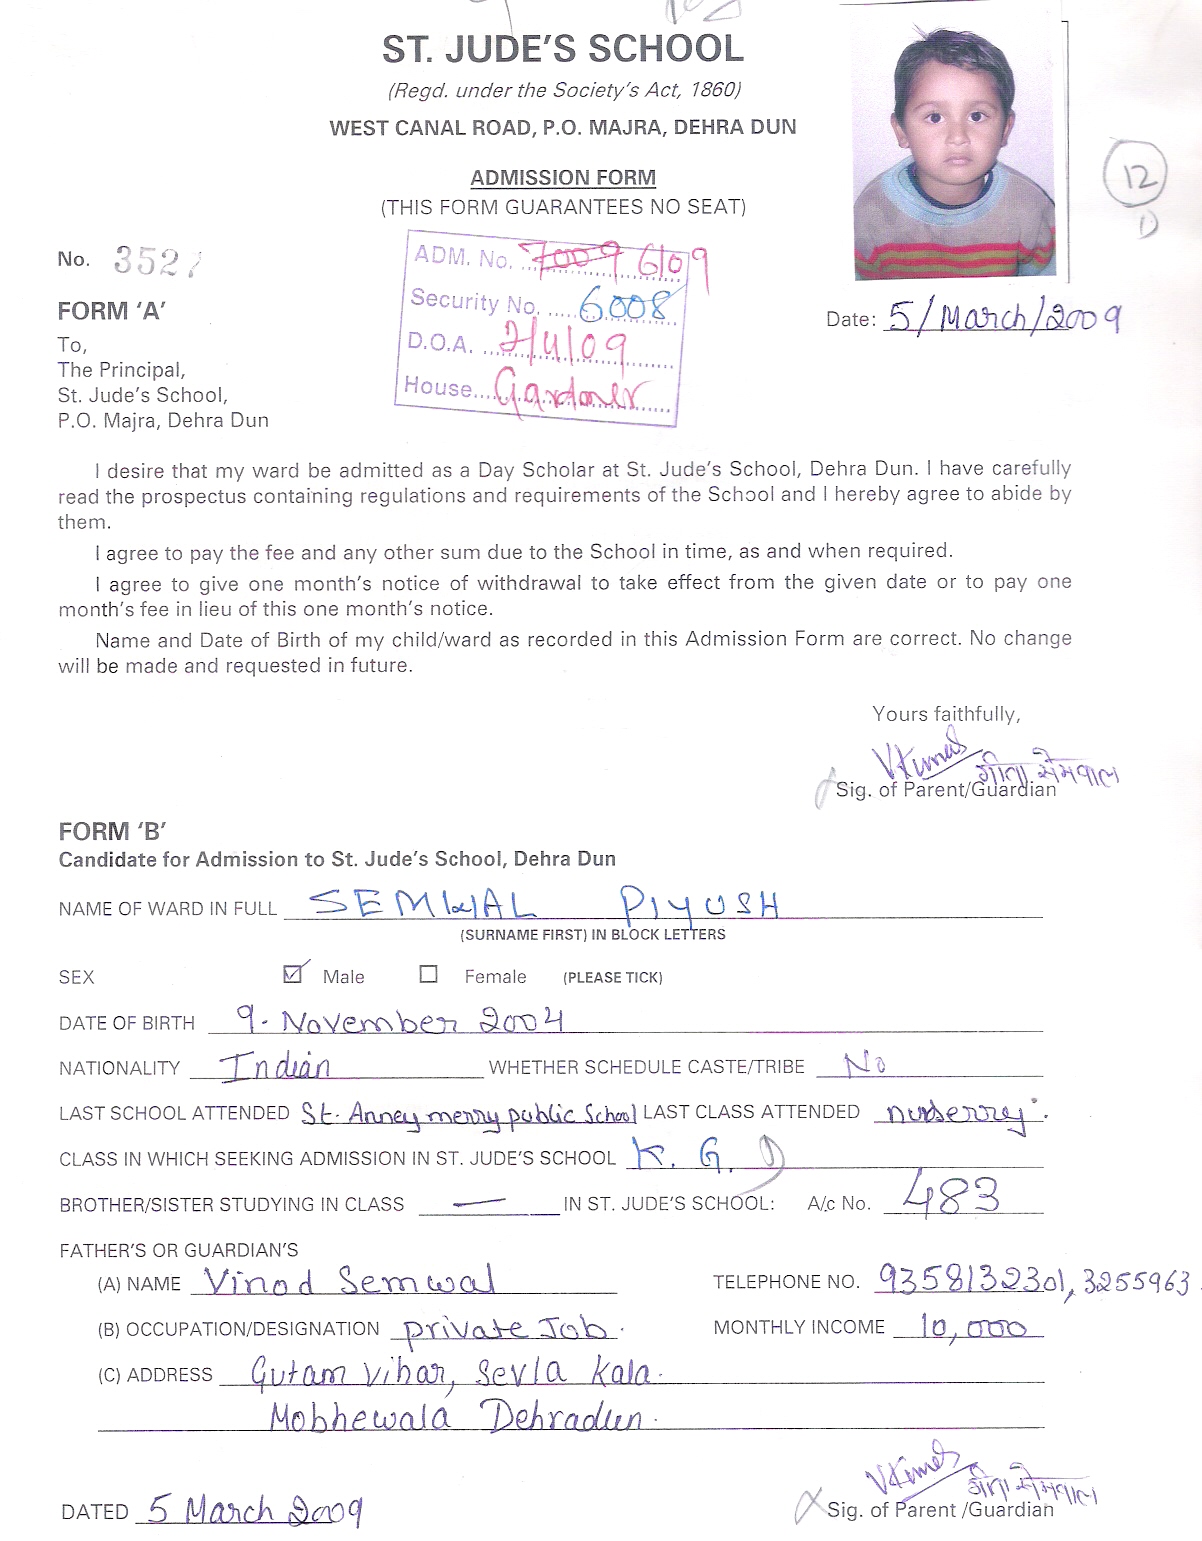 ST. JUDE'S SCHOOL
(Regd. under the Society's Act, 1860)
WEST CANAL ROAD, P.O. MAJRA, DEHRA DUN
ADMISSION FORM
(THIS FORM GUARANTEES NO SEAT)
12
D
No. 352
ADM. No. 7009 6109
Security No. 6008
D.O.A. 2/4/09
House Gardner
FORM 'A'
Date: 5/March/2009
To,
The Principal,
St. Jude's School,
P.O. Majra, Dehra Dun
I desire that my ward be admitted as a Day Scholar at St. Jude's School, Dehra Dun. I have carefully
read the prospectus containing regulations and requirements of the School and I hereby agree to abide by
them.
I agree to pay the fee and any other sum due to the School in time, as and when required.
I agree to give one month's notice of withdrawal to take effect from the given date or to pay one
month's fee in lieu of this one month's notice.
Name and Date of Birth of my child/ward as recorded in this Admission Form are correct. No change
will be made and requested in future.
Yours faithfully,
VKumar गीता सेमवाल
Sig. of Parent/Guardian
FORM 'B'
Candidate for Admission to St. Jude's School, Dehra Dun
NAME OF WARD IN FULL SEMWAL PIYUSH
(SURNAME FIRST) IN BLOCK LETTERS
SEX Male Female (PLEASE TICK)
DATE OF BIRTH 9. November 2004
NATIONALITY Indian WHETHER SCHEDULE CASTE/TRIBE No
LAST SCHOOL ATTENDED St. Anney merry public School LAST CLASS ATTENDED nurserry.
CLASS IN WHICH SEEKING ADMISSION IN ST. JUDE'S SCHOOL K. G. D
BROTHER/SISTER STUDYING IN CLASS — IN ST. JUDE'S SCHOOL: A/c No. 483
FATHER'S OR GUARDIAN'S
(A) NAME Vinod Semwal TELEPHONE NO. 9358132301, 3255963
(B) OCCUPATION/DESIGNATION private Job. MONTHLY INCOME 10,000
(C) ADDRESS Gutam vihar, Sevla Kala.
Mobhewala Dehradun.
VKumar गीता सेमवाल
DATED 5 March 2009 Sig. of Parent /Guardian